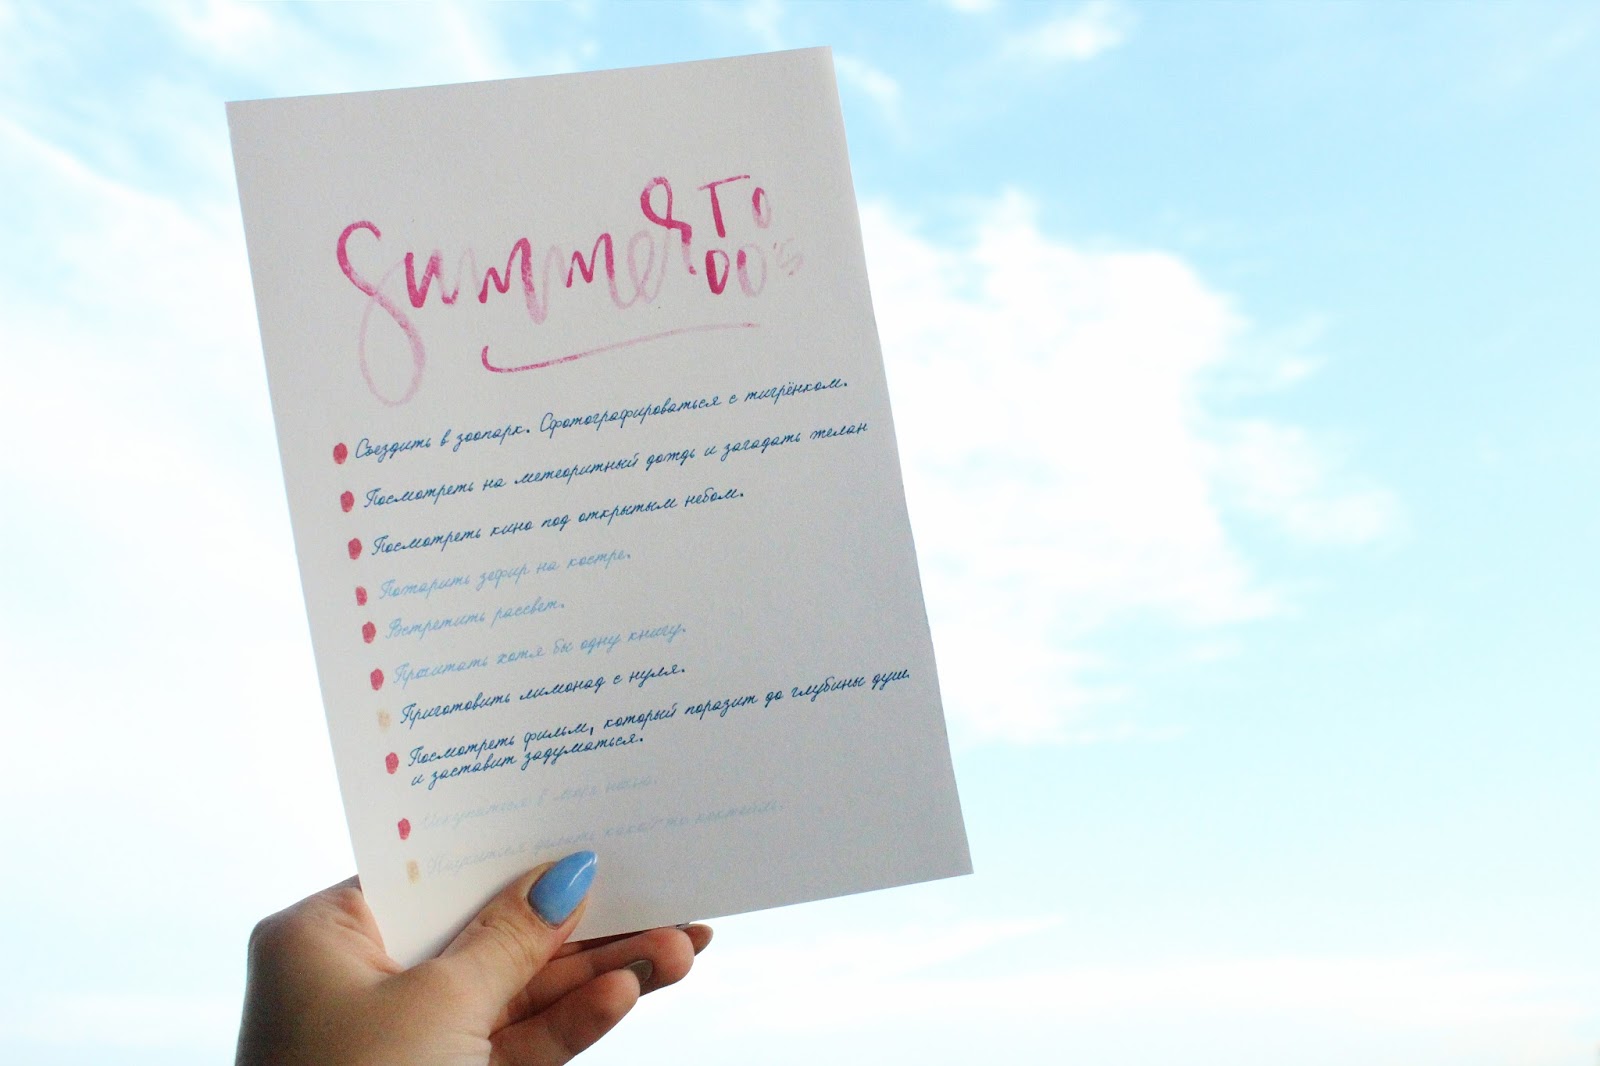 Summer TO
DO's
Съездить в зоопарк. Сфотографироваться с тигрёнком.
Посмотреть на метеоритный дождь и загадать желан
Посмотреть кино под открытым небом.
Пожарить зефир на костре.
Встретить рассвет.
Прочитать хотя бы одну книгу.
Приготовить лимонад с нуля.
Посмотреть фильм, который поразит до глубины душ
и заставит задуматься.
Искупаться в море ночью.
Научиться делать какой-то коктейль.